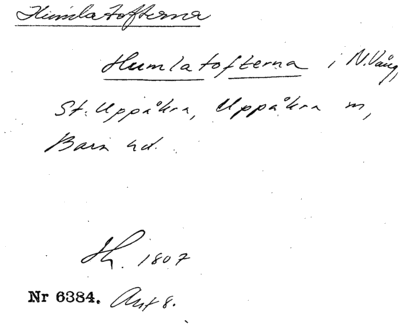 Humlatofterna
Humlatofterna i N. Vång,
St. Uppåkra, Uppåkra sn,
Bara hd.
Sk. 1807
Nr 6384. Akt 8.